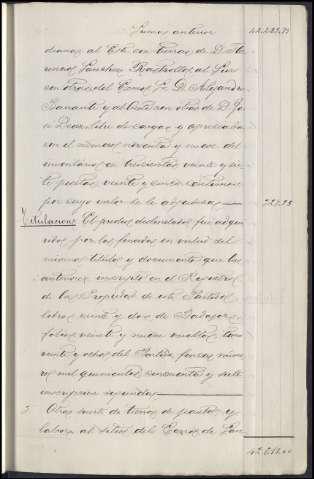 Suma anterior 42.282,71
dianas, al Este con tierras de D.
Sanchez al Sur
con tierras del Exmo. Sr. D. Alejandro
y al Oeste con otras de D.
libre de cargas y apreciada
con el número noventa y nueve del
inventario, en trescientas veinte y
pesetas, veinte y cinco centimos
por cuyo valor se le adjudica
Titulacion: El predio deslindado fue adqui-
rido por los finados en virtud del
mismo titulo y documento que las
anteriores inscripto en el Registro
de la Propiedad de este Partido
libro veinte y dos de
folio veinte y nueve vuelto, tomo
veinte y ocho del Partido, finca núme-
ro mil quinientos cincuenta y siete
inscripcion segunda
Otra suerte de tierra de pastos y
labor al sitio del Cerro de San